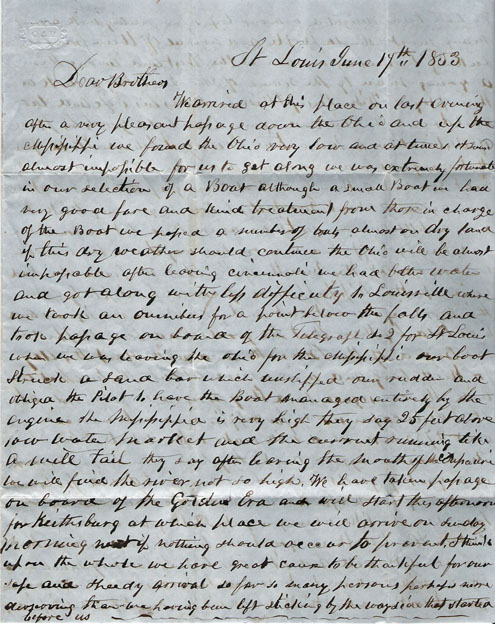 St Louis June 17th 1853
Dear Brothers
We arrived at this place on last evening
after a very pleasant passage down the Ohio and up the
Mississippi we found the Ohio very low and at times it seemed
almost impossible for us to get along we was extremely fortunate
in our selection of a Boat although a small Boat we had
very good fare and kind treatment from those in charge
of the Boat we passed a number of boats almost on dry land
if this dry weather should continue the Ohio will be almost
impassable after leaving cincinnati we had better water
and got along with less difficulty to Louisville where
we took an omnibus for a point below the falls and
took passage on board of the Telegraph No 2 for St Louis
when we was leaving the ohio for the Mississippi our boat
Struck a Sand bar which unshipped our rudder and
obliged the Pilot to have the Boat managed entirely by the
engine the Mississippi is very high they say 25 feet above
low water market and the current running like
a mill tail they say after leaving the mouth of the
we will find the river not so high. We have taken passage
on board of the Golden Era and will start this afternoon
for Keithsburg at which place we will arrive on sunday
morning next if nothing should occur to prevent. I think
upon the whole we have great cause to be thankful for our
safe and speedy arrival so far so many persons perhaps more
deserving than we having been left sticking by the wayside that started
before us